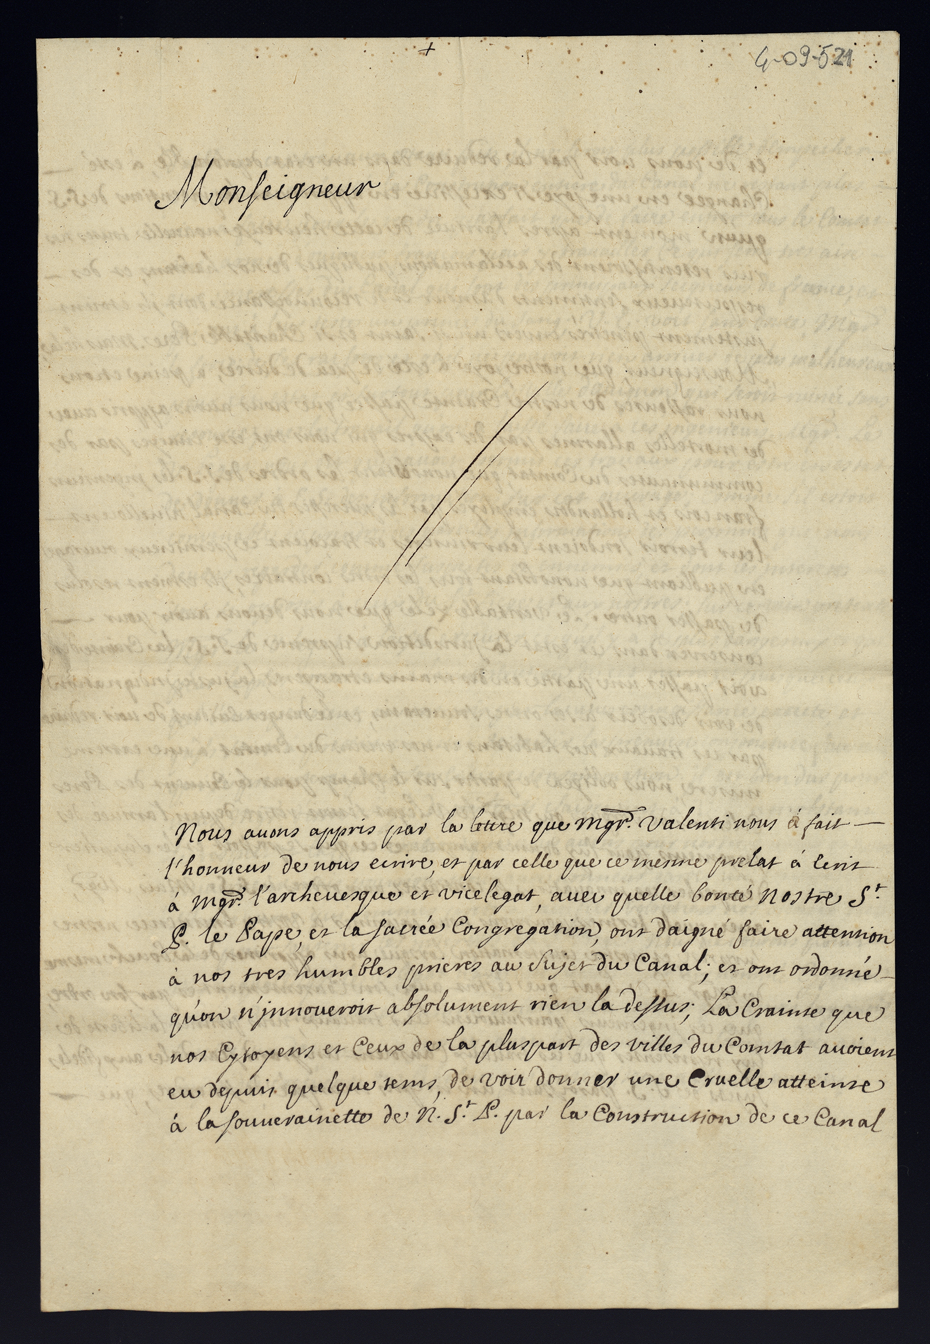 4-09-521
Monseigneur
Nous auons appris par la lettre que Mgr. Valenti nous à fait
l'honneur de nous ecrire, et par celle que ce mesme prelat à ecrit
à Mgr. l'archeuesque et vicelegat, auec quelle bonté Nostre St.
P. le Pape, et la sacrée Congregation, ont daigné faire attention
à nos tres humbles prieres au sujet du Canal; et ont ordonné
qu'on n'jnnoueroit absolument rien la dessus; La Crainte que
nos Cytoyens et Ceux de la pluspart des villes du Comtat auoient
eu depuis quelque tems, de voir donner une Cruelle atteinte
à la souverainette de N. St. P. par la Construction de ce Canal